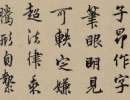 子昂作字
筆眼明見
可軼定嫌
超法律秉
騰形自繫